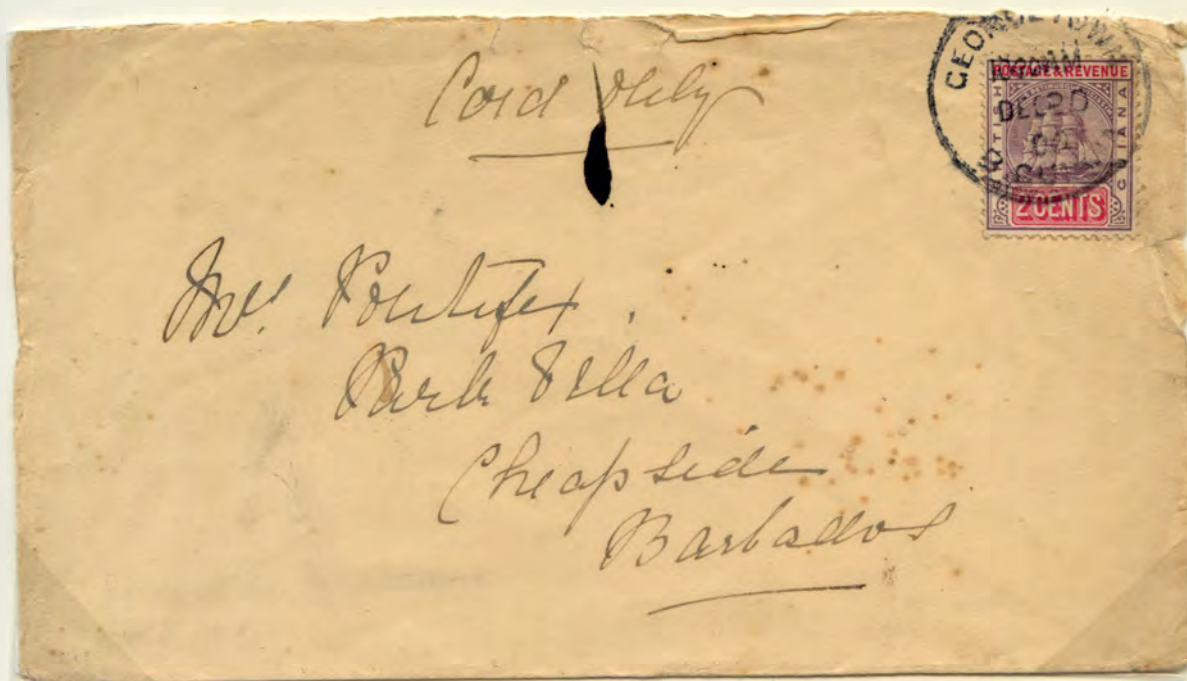 Card Only
GEORGETOWN
DEC 20
POSTAGE & REVENUE
BRITISH GUIANA
2 CENTS
Mrs. Pontifex,
Park Villa
Cheapside
Barbados